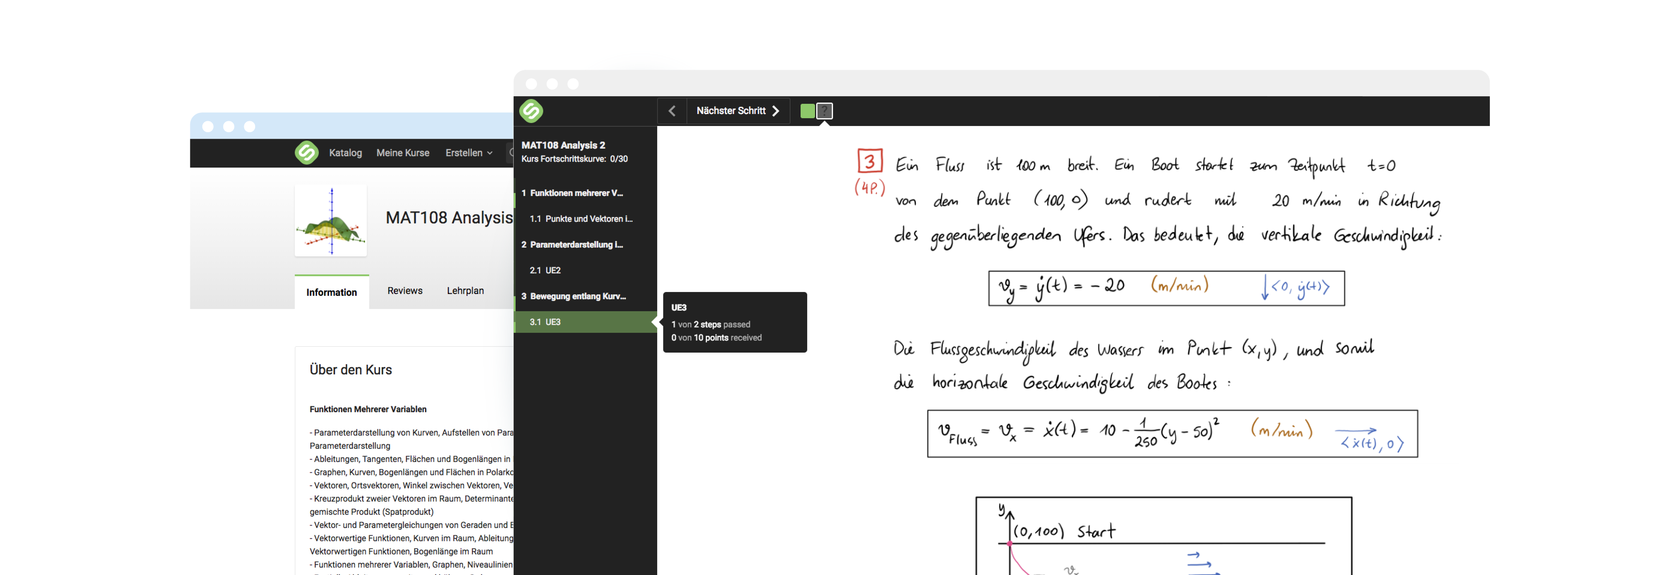 Katalog Meine Kurse Erstellen
MAT108 Analysis
Information Reviews Lehrplan
Über den Kurs
Funktionen Mehrerer Variablen
- Parameterdarstellung von Kurven, Aufstellen von Para
Parameterdarstellung
- Ableitungen, Tangenten, Flächen und Bogenlängen in
- Graphen, Kurven, Bogenlängen und Flächen in Polarko
- Vektoren, Ortsvektoren, Winkel zwischen Vektoren, Ve
- Kreuzprodukt zweier Vektoren im Raum, Determinante
gemischte Produkt (Spatprodukt)
- Vektor- und Parametergleichungen von Geraden und E
- Vektorwertige Funktionen, Kurven im Raum, Ableitung
Vektorwertigen Funktionen, Bogenlänge im Raum
- Funktionen mehrerer Variablen, Graphen, Niveaulinien
Nächster Schritt
MAT108 Analysis 2
Kurs Fortschrittskurve: 0/30
1 Funktionen mehrerer V...
1.1 Punkte und Vektoren i...
2 Parameterdarstellung i...
2.1 UE2
3 Bewegung entlang Kurv...
3.1 UE3
UE3
1 von 2 steps passed
0 von 10 points received
3 Ein Fluss ist 100 m breit. Ein Boot startet zum Zeitpunkt t=0
(4P.) von dem Punkt (100, 0) und rudert mit 20 m/min in Richtung
des gegenüberliegenden Ufers. Das bedeutet, die vertikale Geschwindigkeit:
v_y = ẏ(t) = - 20 (m/min) ↓⟨0, ẏ(t)⟩
Die Flussgeschwindigkeit des Wassers im Punkt (x,y), und somit
die horizontale Geschwindigkeit des Bootes :
v_Fluss = v_x = ẋ(t) = 10 - 1/250 (y - 50)² (m/min) ⟨ẋ(t), 0⟩
y
(0,100) Start